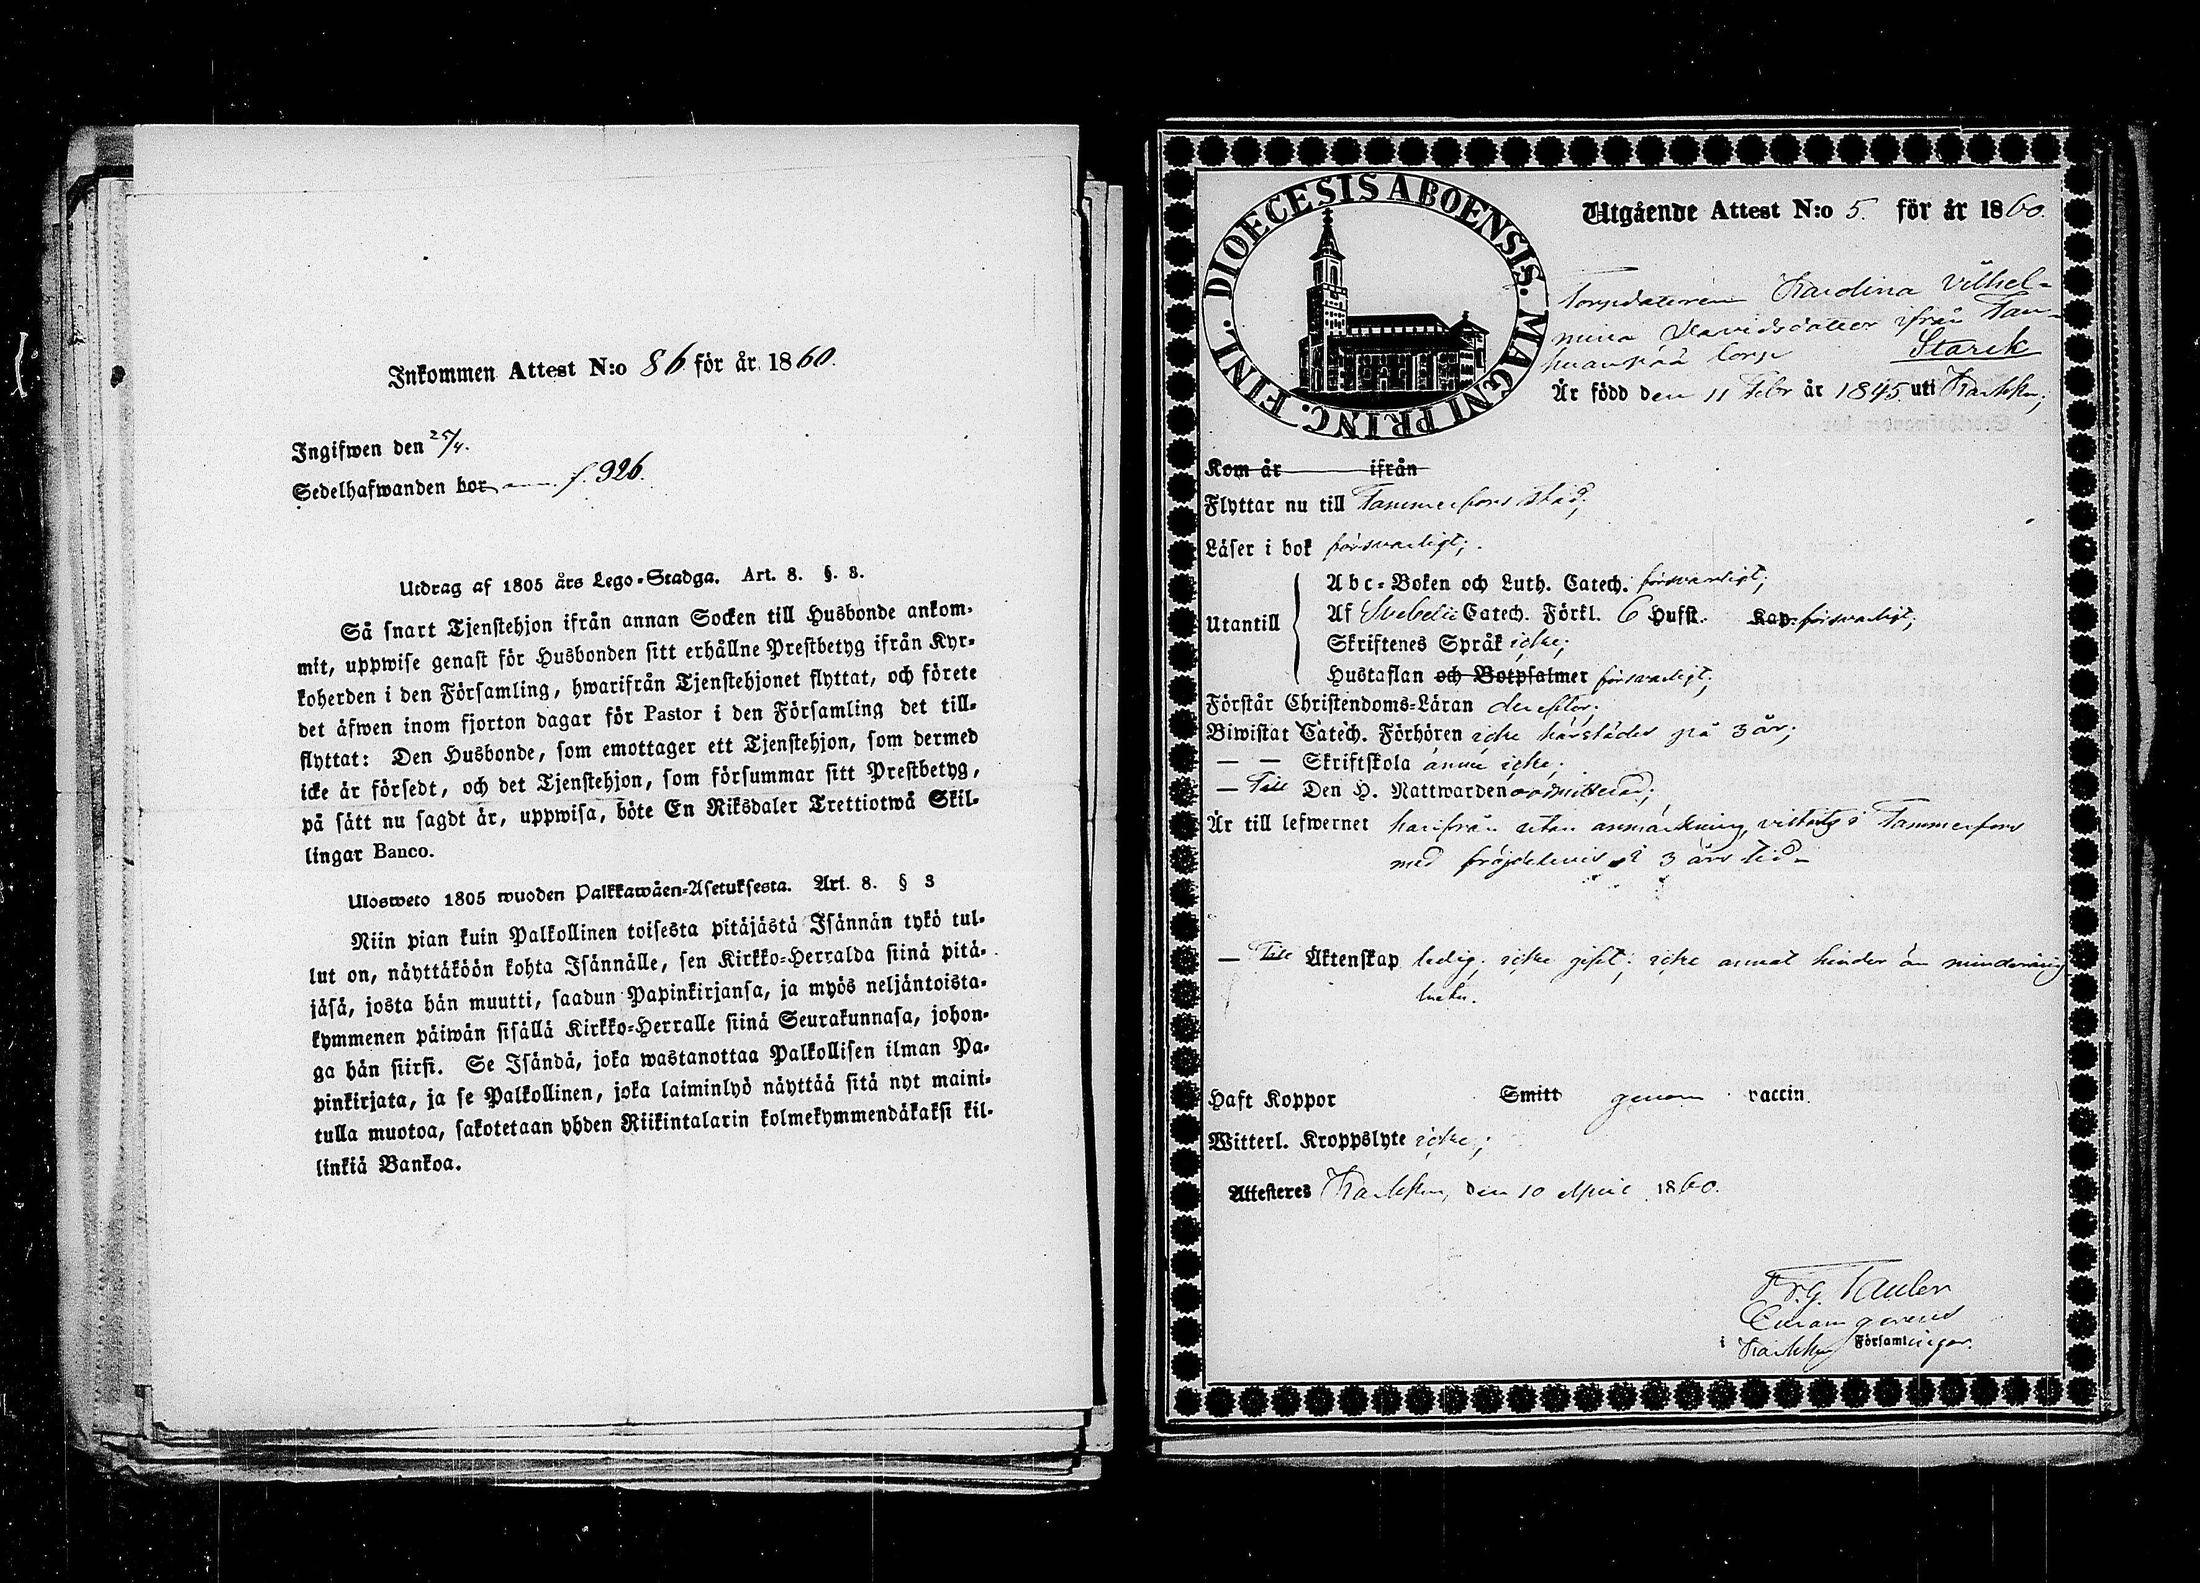 Inkommen Attest N:o 86 för år 1860.
Ingifwen den 25/4.
Sedelhafwanden bor f. 926.
Utdrag af 1805 års Lego-Stadga. Art. 8. §. 3.
Så snart Tjenstehjon ifrån annan Socken till Husbonde ankom-
mit, uppwise genast för Husbonden sitt erhållne Prestbetyg ifrån Kyr-
koherden i den Församling, hwarifrån Tjenstehjonet flyttat, och förete
det äfwen inom fjorton dagar för Pastor i den Församling det till-
flyttat: Den Husbonde, som emottager ett Tjenstehjon, som dermed
icke är försedt, och det Tjenstehjon, som försummar sitt Prestbetyg,
på sätt nu sagdt är, uppwisa, böte En Riksdaler Trettiotwå Skil-
lingar Banco.
Ulosweto 1805 wuoden Palkkawäen-Asetuksesta. Art. 8. § 3
Niin pian kuin Palkollinen toisesta pitäjästä Isännän tykö tul-
lut on, näyttäköön kohta Isännälle, sen Kirkko-Herralda siinä pitä-
jäsä, josta hän muutti, saadun Papinkirjansa, ja myös neljäntoista-
kymmenen päiwän sisällä Kirkko-Herralle siinä Seurakunnasa, johon-
ga hän siirsi. Se Isändä, joka wastanottaa Palkollisen ilman Pa-
pinkirjata, ja se Palkollinen, joka laiminlyö näyttää sitä nyt maini-
tulla muotoa, sakotetaan yhden Riikintalarin kolmekymmendäkaksi kil-
linkiä Bankoa.
DIOECESIS ABOENSIS. MAGNI PRINC. FINL.
Utgående Attest N:o 5. för år 1860.
Torpdottren Karolina Vilhel-
mina Davidsdotter ifrån Tan-
huanpää torp Starck
Är född den 11 Febr år 1845 uti Karkku;
Kom år ifrån
Flyttar nu till Tammerfors stad;
Läser i bok försvarligt;
Abc-Boken och Luth. Catech. försvarligt;
Utantill Af Svebelii Catech. Förkl. 6 Hufst. Kap försvarligt;
Skriftenes Språk icke;
Hustaflan och Botpsalmer försvarligt;
Förstår Christendoms-Läran derefter;
Biwistat Catech. Förhören icke härstädes på 3 år;
— — Skriftskola ännu icke;
— Till Den H. Nattwarden oadmitterad;
Är till lefwernet härifrån utan anmärkning, vistats i Tammerfors
med fräjdebevis i 3 års tid-
— Till Äktenskap ledig, icke gift; icke annat hinder än minderårig
heten.
Haft Koppor Smitt genom vaccin
Witterl. Kroppslyte icke;
Attesteras Karkku, den 10 April 1860.
Fr. G. Tauler
Curam gerens
i Karkku Församlingar.